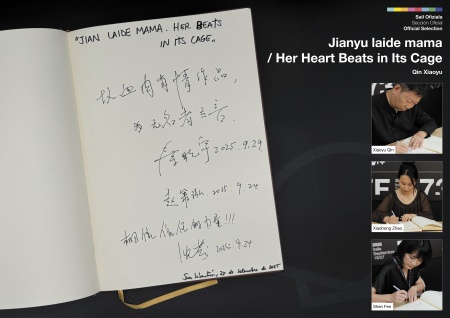 "JIAN LAIDE MAMA. HER BEATS
IN ITS CAGE"
血肉有情作品,
为无名者立言.
秦晓宇 2025.9.24
2025 9.24
相信 的力量!!!
2025.9.24
San Sebastián, de setiembre de 2025
Sail Ofiziala
Sección Oficial
Official Selection
Jianyu laide mama
/ Her Heart Beats in Its Cage
Qin Xiaoyu
Xiaoyu Qin
Xiaohong Zhao
Shen Fee